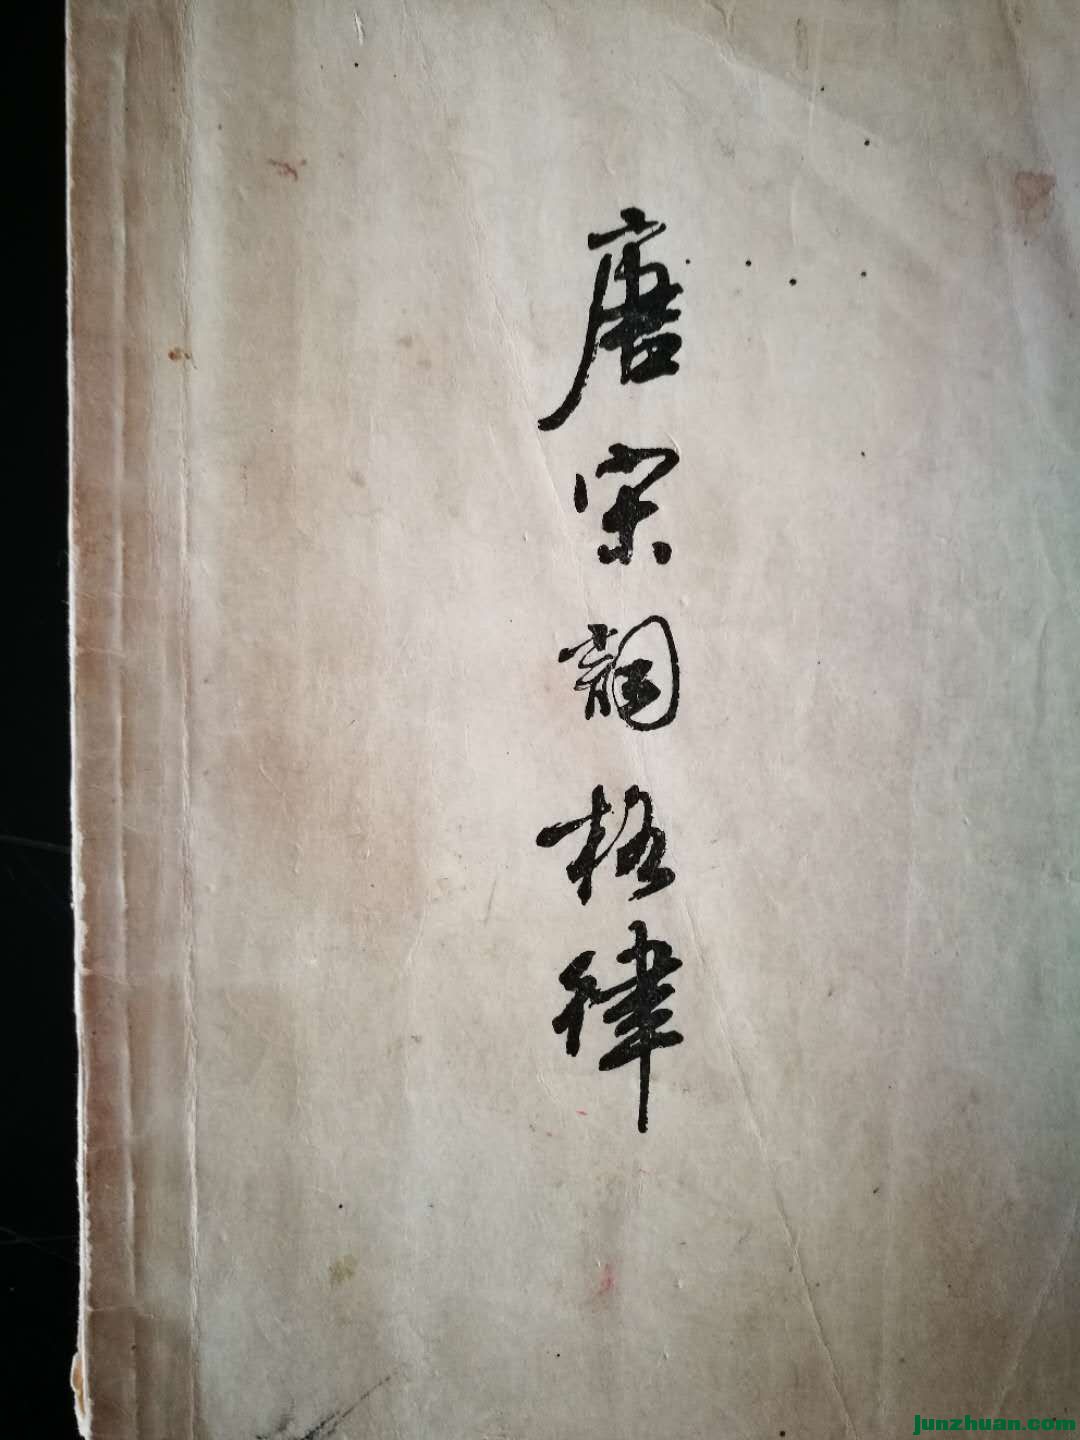 唐宋詞格律
junzhuan.com